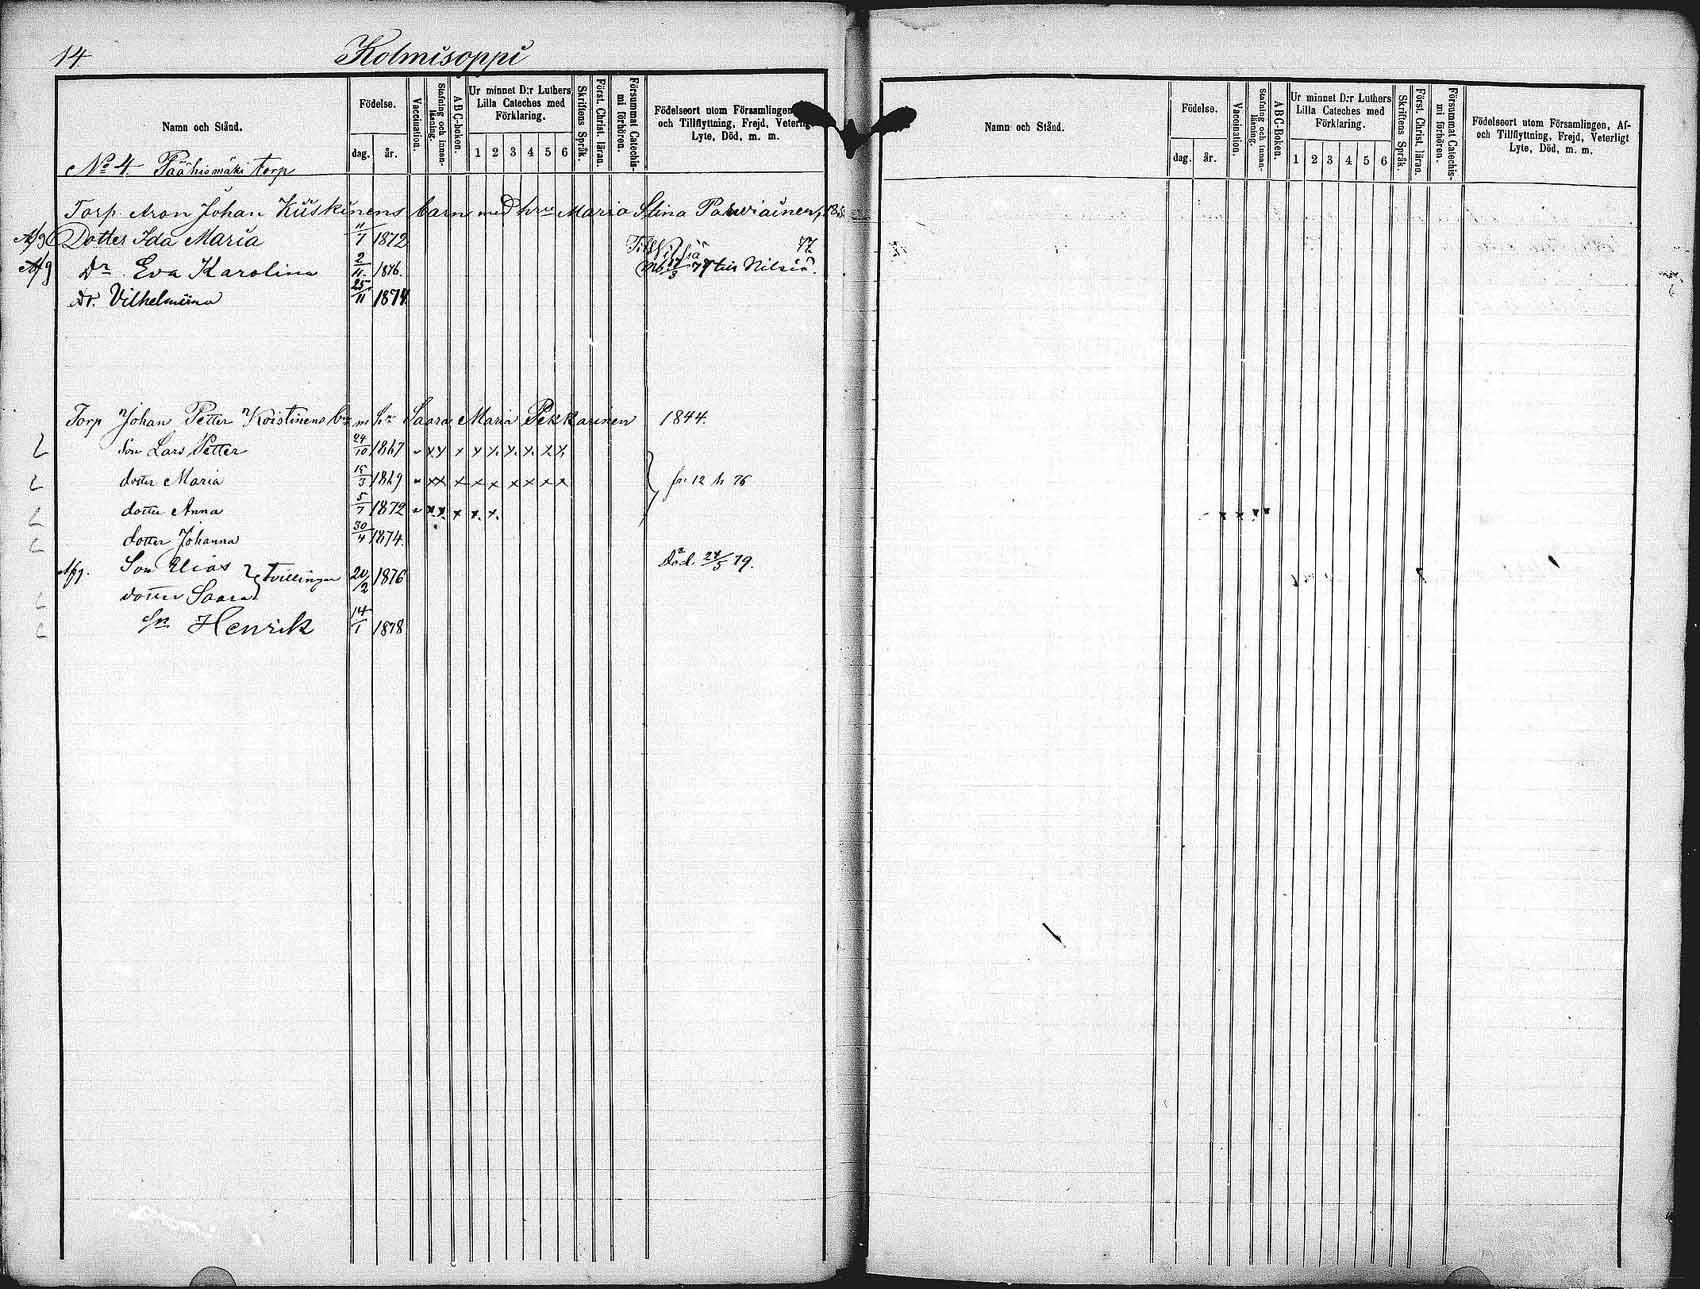 14
Kolmisoppi
Namn och Stånd.
Födelse.
dag.
år.
Vaccination.
Stafning och innanläsning.
ABC-boken.
Ur minnet D:r Luthers Lilla Cateches med Förklaring.
1 2 3 4 5 6
Skriftens Språk.
Först. Christ. läran.
Försummat Catechismi förhören.
Födelseort utom Församlingen
och Tillflyttning, Frejd, Veterligt
Lyte, Död, m. m.
No 4. Päähismäki torp
Torp Aron Johan Kiiskinens barn med hru Maria Stina Parviainen
Afg Dotter Ida Maria 11/1 1872 77
Afg Dr Eva Karolina 2/11 1876. 77 till Nilsiä.
Dr. Vilhelmiina 25/11 1874
Torp Johan Petter Koistinens bn m hr Saara Maria Pekkarinen 1844.
Son Lars Petter 24/10 1867 x x x x x x x x x
dotter Maria 15/3 1869 x x x x x x x x x fr 12 h 76
dotter Anna 5/7 1872 x x x x x
dotter Johanna 30/4 1874.
Afg. Son Elias tvillingar 20/2 1876 Död 24/5 79.
dotter Saara
Sn Henrik 14/1 1878
Namn och Stånd.
Födelse.
dag.
år.
Vaccination.
Stafning och innanläsning.
ABC-Boken.
Ur minnet D:r Luthers Lilla Cateches med Förklaring.
1 2 3 4 5 6
Skriftens Språk.
Först. Christ. läran.
Försummat Catechismi förhören.
Födelseort utom Församlingen, Af-
och Tillflyttning, Frejd, Veterligt
Lyte, Död, m. m.